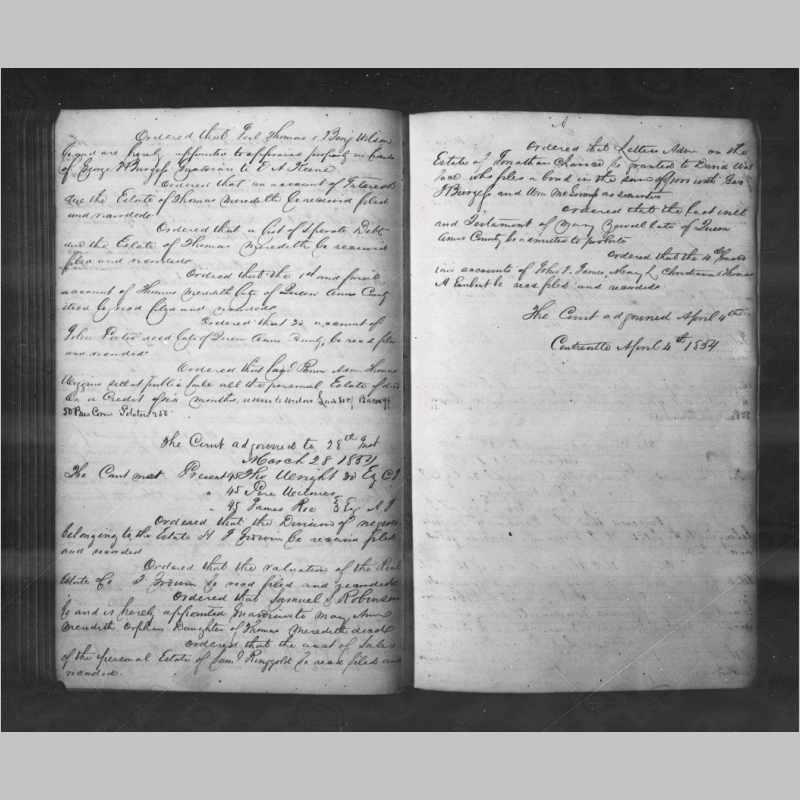 Ordered that Joel Thomas & Benj Wilson
be and are hereby appointed to appraise property in hands
of George W Burgess Guardian to E A Keene
Ordered that an account of Interest
due the Estate of Thomas Meredith be received filed
and recorded
Ordered that a list of Sperate Debts
due the Estate of Thomas Meredith be received
filed and recorded
Ordered that the 1st and final
account of Thomas Meredith late of Queen Anns County
deed be read filed and recorded
Ordered that account of
John deed late of Queen Anns County be read filed
and recorded
Ordered that Adm Thomas
sell at public sale all the personal Estate of
On a Credit of six months,
50 Bus Corn
The Court adjourned to 28th Inst
March 28 1854
The Court met Present 45 Tho Wright 3d Esq C J
" 45 Pere Wilmer
" 45 James Roe } Esq A J
Ordered that the Division of negroes
belonging to the Estate H J be received filed
and recorded
Ordered that the valuation of the Real
Estate of J be read filed and recorded
Ordered that Samuel J Robinson
be and is hereby appointed Guardian to Mary Ann
Meredith Orphan Daughter of Thomas Meredith decd
Ordered that the acct of Sales
of the personal Estate of Saml Ringgold be read filed and
recorded
Ordered that Letters Adm on the
Estate of Jonathan Chance be granted to David Wal
lace who files a bond in the sum of with Geo
W Burgess and Wm as securities
Ordered that the last will
and Testament of Mary late of Queen
Anns County be admitted to probate
Ordered that the 4
ian accounts of John Henry L Christian & Thomas
M be read filed and recorded
The Court adjourned April 4th
Centreville April 4th 1854